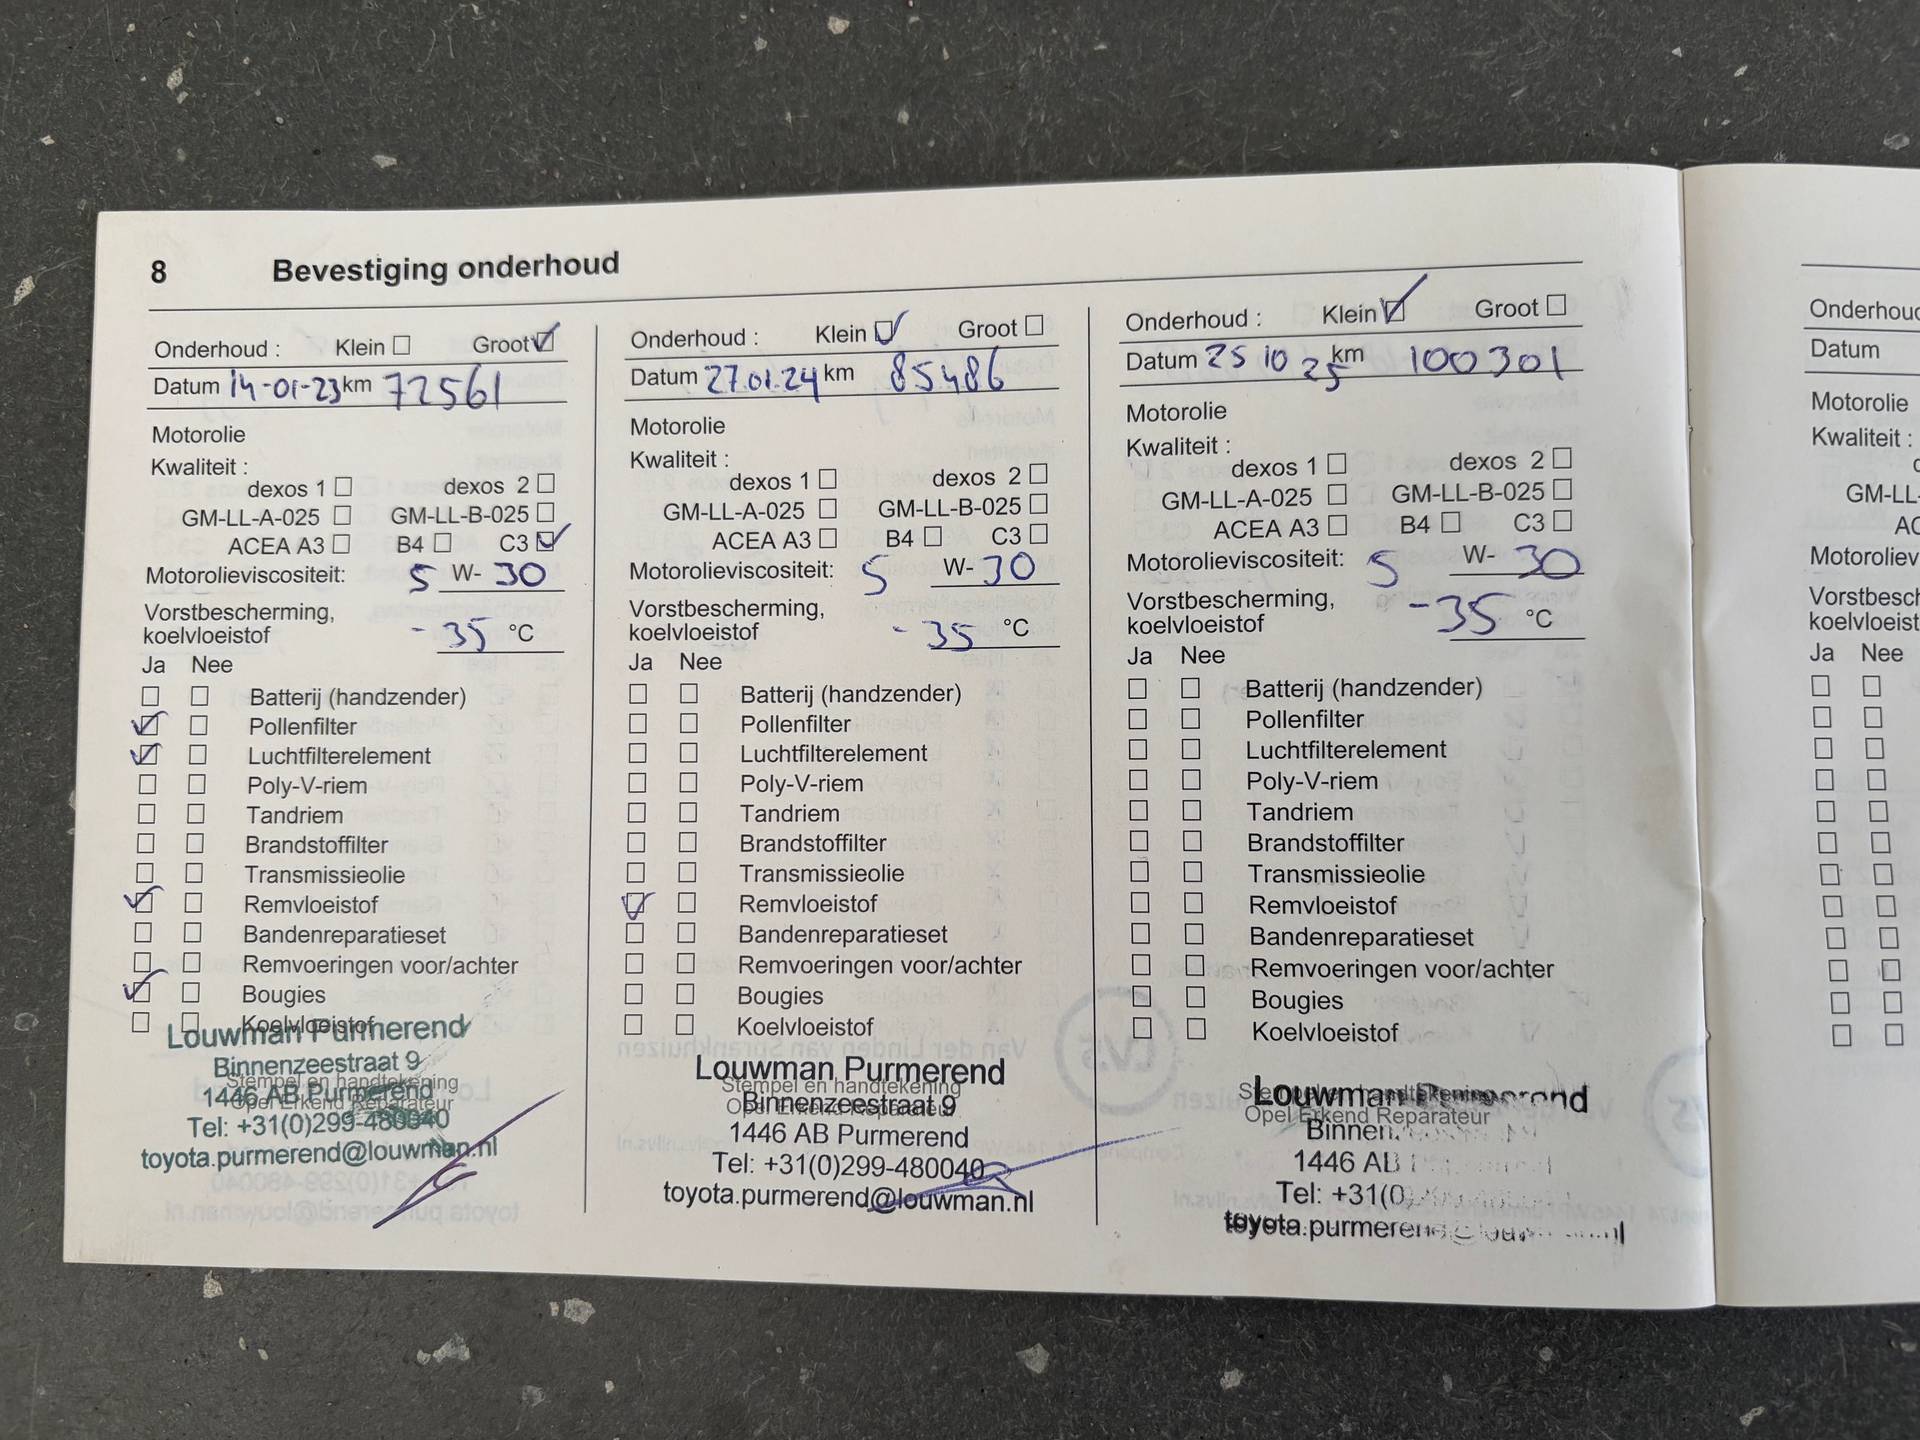 8 Bevestiging onderhoud
Onderhoud : Klein Groot
Datum 14-01-23 km 72561
Motorolie
Kwaliteit :
dexos 1 dexos 2
GM-LL-A-025 GM-LL-B-025
ACEA A3 B4 C3
Motorolieviscositeit: 5 W- 30
Vorstbescherming,
koelvloeistof -35 °C
Ja Nee
Batterij (handzender)
Pollenfilter
Luchtfilterelement
Poly-V-riem
Tandriem
Brandstoffilter
Transmissieolie
Remvloeistof
Bandenreparatieset
Remvoeringen voor/achter
Bougies
Koelvloeistof
Louwman Purmerend
Binnenzeestraat 9
Stempel en handtekening
1446 AB Purmerend
Opel Erkend Reparateur
Tel: +31(0)299-480040
toyota.purmerend@louwman.nl
Onderhoud : Klein Groot
Datum 27.01.24 km 85486
Motorolie
Kwaliteit :
dexos 1 dexos 2
GM-LL-A-025 GM-LL-B-025
ACEA A3 B4 C3
Motorolieviscositeit: 5 W- 30
Vorstbescherming,
koelvloeistof -35 °C
Ja Nee
Batterij (handzender)
Pollenfilter
Luchtfilterelement
Poly-V-riem
Tandriem
Brandstoffilter
Transmissieolie
Remvloeistof
Bandenreparatieset
Remvoeringen voor/achter
Bougies
Koelvloeistof
Louwman Purmerend
Stempel en handtekening
Binnenzeestraat 9
Opel Erkend Reparateur
1446 AB Purmerend
Tel: +31(0)299-480040
toyota.purmerend@louwman.nl
Onderhoud : Klein Groot
Datum 25 10 25 km 100301
Motorolie
Kwaliteit :
dexos 1 dexos 2
GM-LL-A-025 GM-LL-B-025
ACEA A3 B4 C3
Motorolieviscositeit: 5 W- 30
Vorstbescherming,
koelvloeistof -35 °C
Ja Nee
Batterij (handzender)
Pollenfilter
Luchtfilterelement
Poly-V-riem
Tandriem
Brandstoffilter
Transmissieolie
Remvloeistof
Bandenreparatieset
Remvoeringen voor/achter
Bougies
Koelvloeistof
Stempel en handtekening
Louwman Purmerend
Opel Erkend Reparateur
1446 AB
Tel: +31(0)
toyota.purmerend@louwman.nl
Onderhoud
Datum
Motorolie
Kwaliteit :
GM-LL-
AC
Motoroliev
Vorstbesch
koelvloeist
Ja Nee